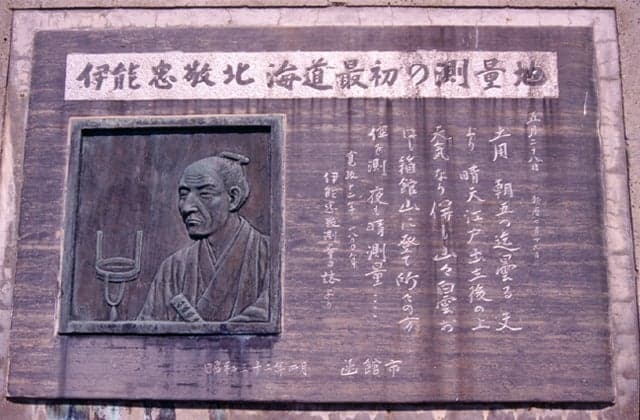 伊能忠敬北海道最初の測量地
五月二十八日
同所 朝五つ迄曇る 夫
より晴天江戸出立後の上
天気なり併し山々白雲お
ほし箱館山に登て所々の方
位を測 夜も晴測量……
寛政十二年 一八〇〇年
伊能忠敬測量日誌より
昭和三十二年 月 函館市